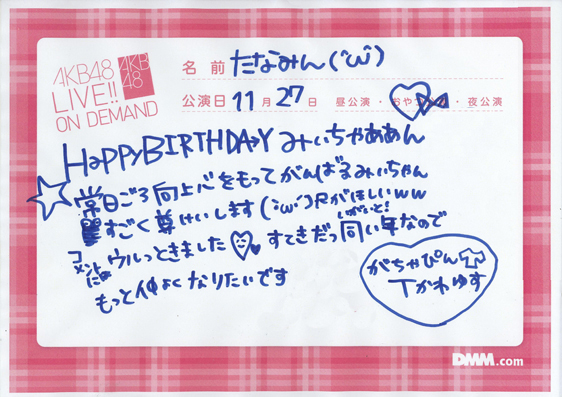 AKB48
LIVE!!
ON DEMAND
AKB
48
名前 たなみん(´ω`)
公演日 11月27日 昼公演・おやつ公演・夜公演
HAPPYBIRTHDAY みぃちゃああん
常日ごろ向上心をもってがんばるみぃちゃん
すごく尊けいします(´ω`)Rがほしいww
コメントにはウルっときました すてきだっ
いがいと!
同い年なので
もっと仲よくなりたいです
がちゃぴん
Tかわゆす
DMM.com